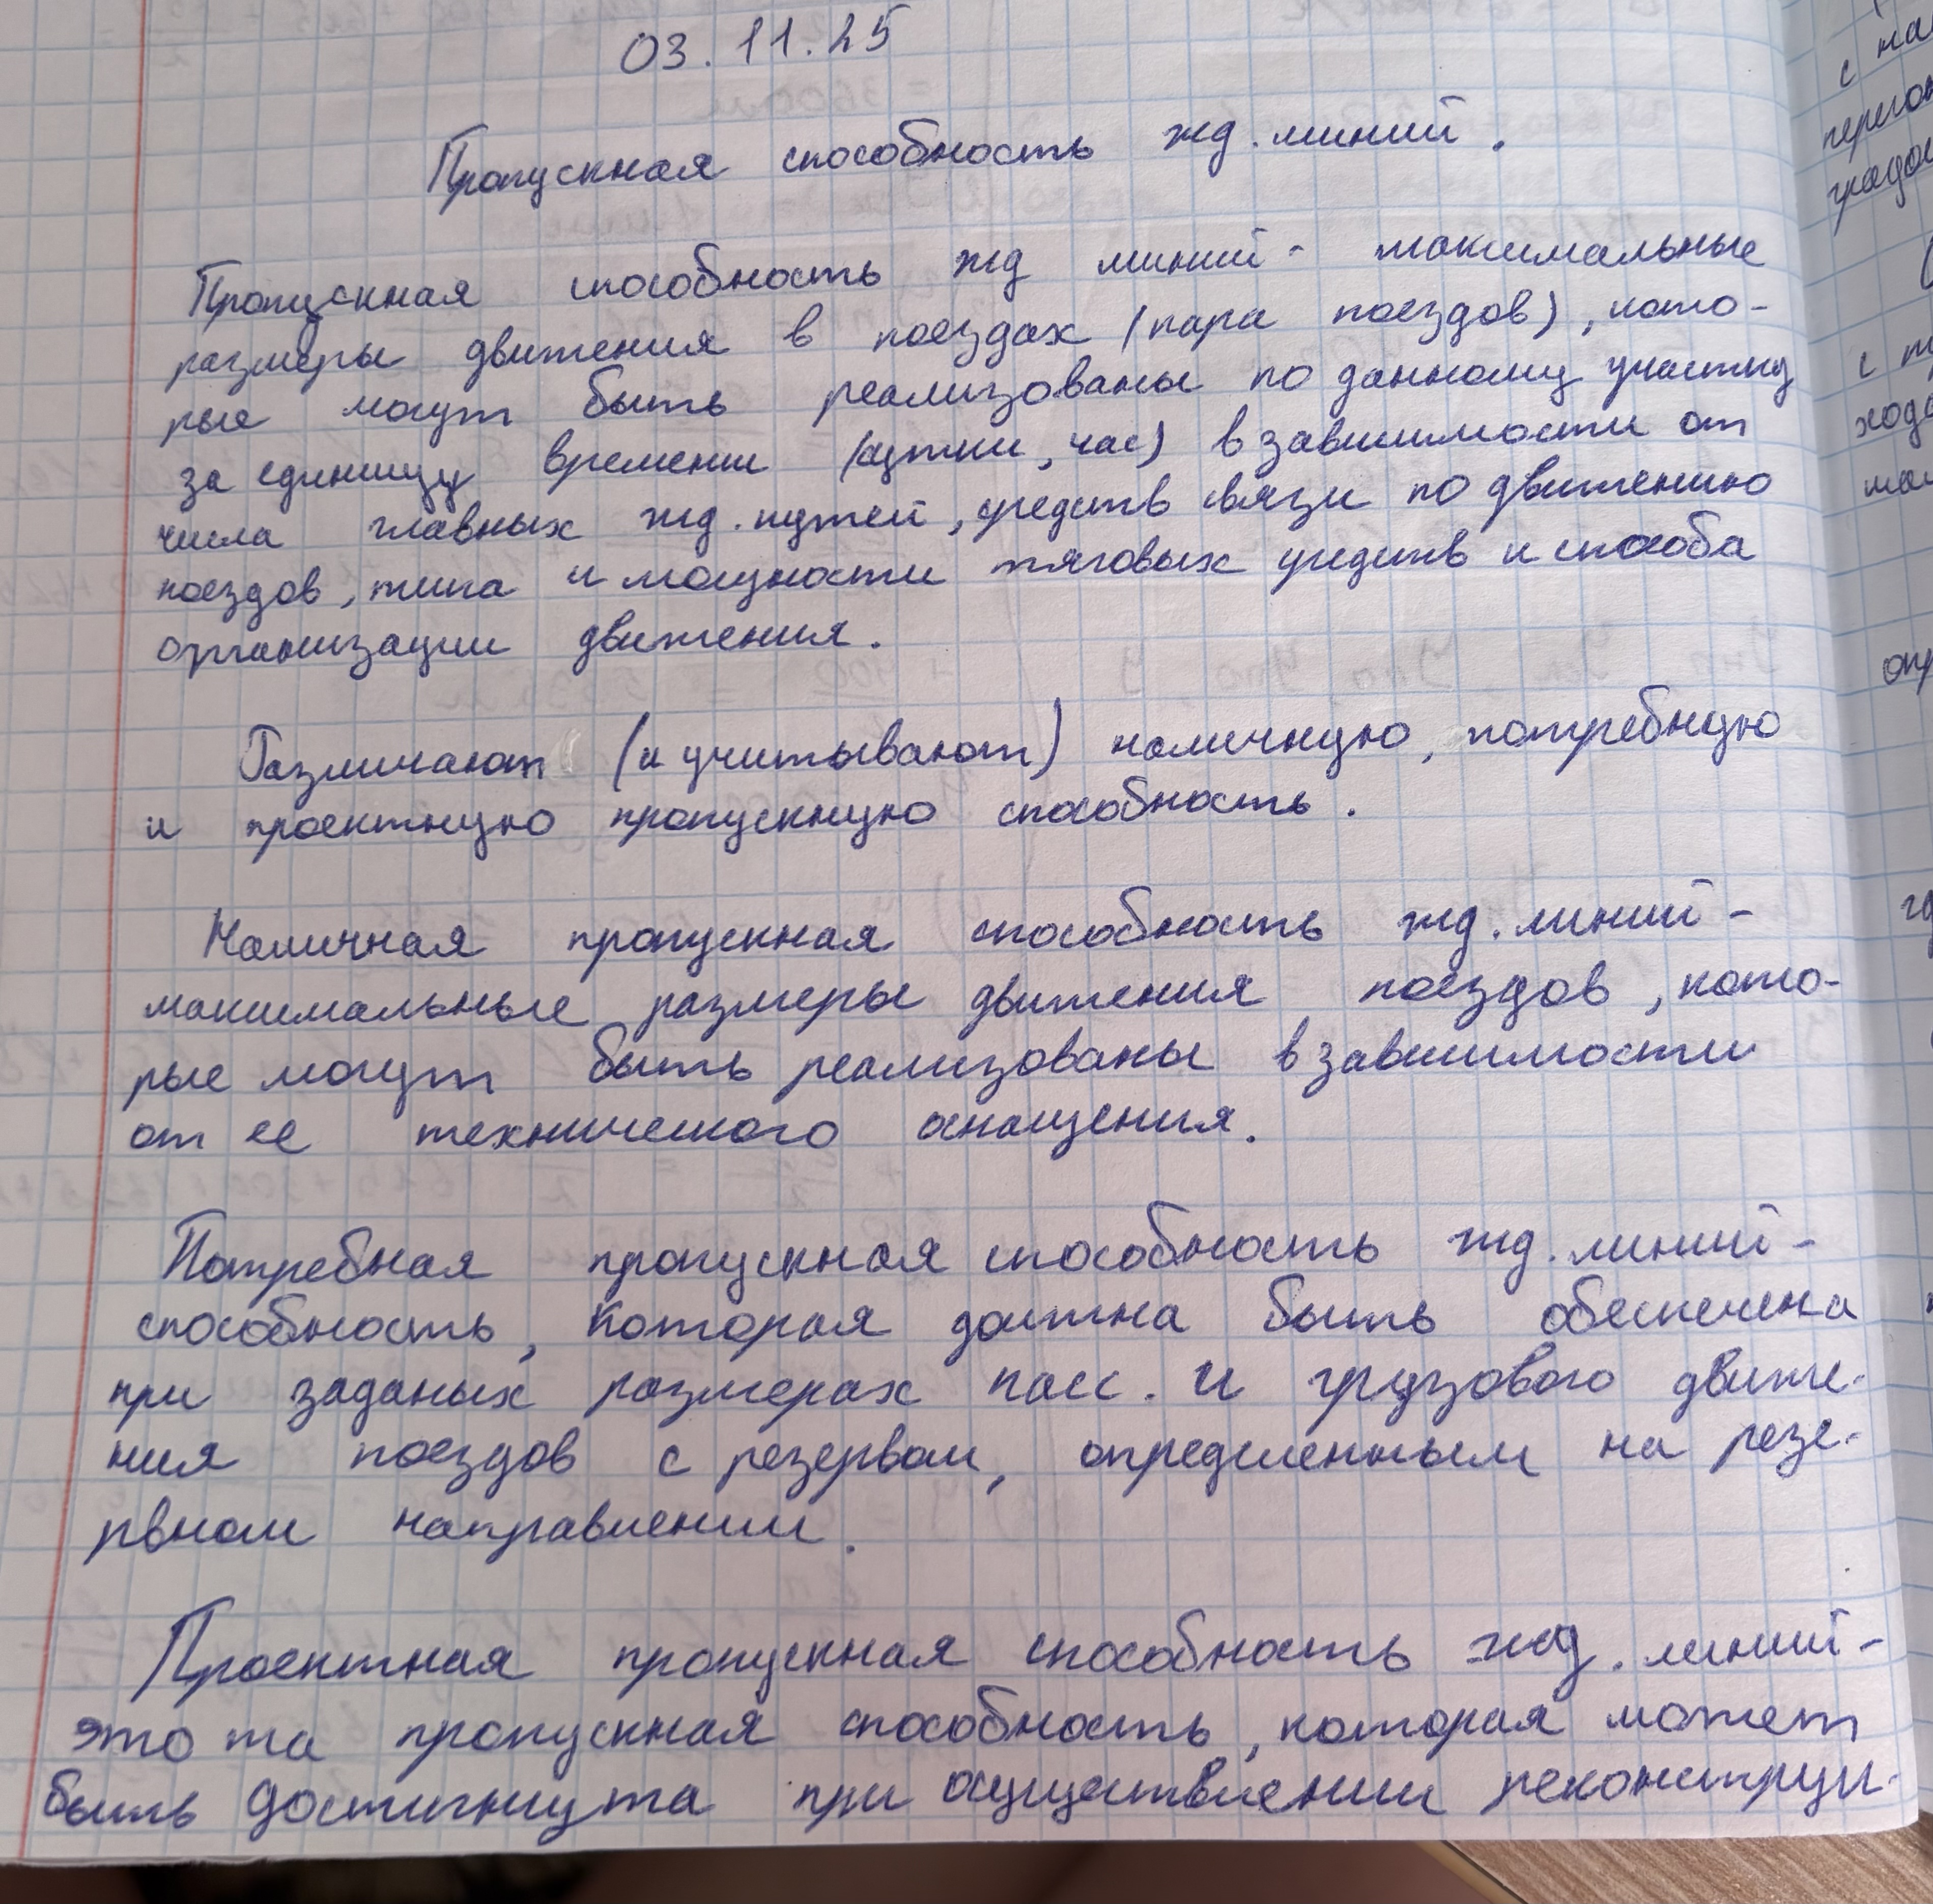 03.11.25
Пропускная способность жд. линий.
Пропускная способность жд линий - максимальные
размеры движения в поездах (пара поездов), кото-
рые могут быть реализованы по данному участку
за единицу времени (сутки, час) в зависимости от
числа главных жд. путей, средств связи по движению
поездов, типа и мощности тяговых средств и способа
организации движения.
Различают (и учитывают) наличную, потребную
и проектную пропускную способность.
Наличная пропускная способность жд. линий -
максимальные размеры движения поездов, кото-
рые могут быть реализованы в зависимости
от ее технического оснащения.
Потребная пропускная способность жд. линий -
способность, которая должна быть обеспечена
при заданых размерах пасс. и грузового движе-
ния поездов с резервом, определенным на резе-
рвном направлении.
Проектная пропускная способность жд. линий -
это та пропускная способность, которая может
быть достигнута при осуществлении реконструк-